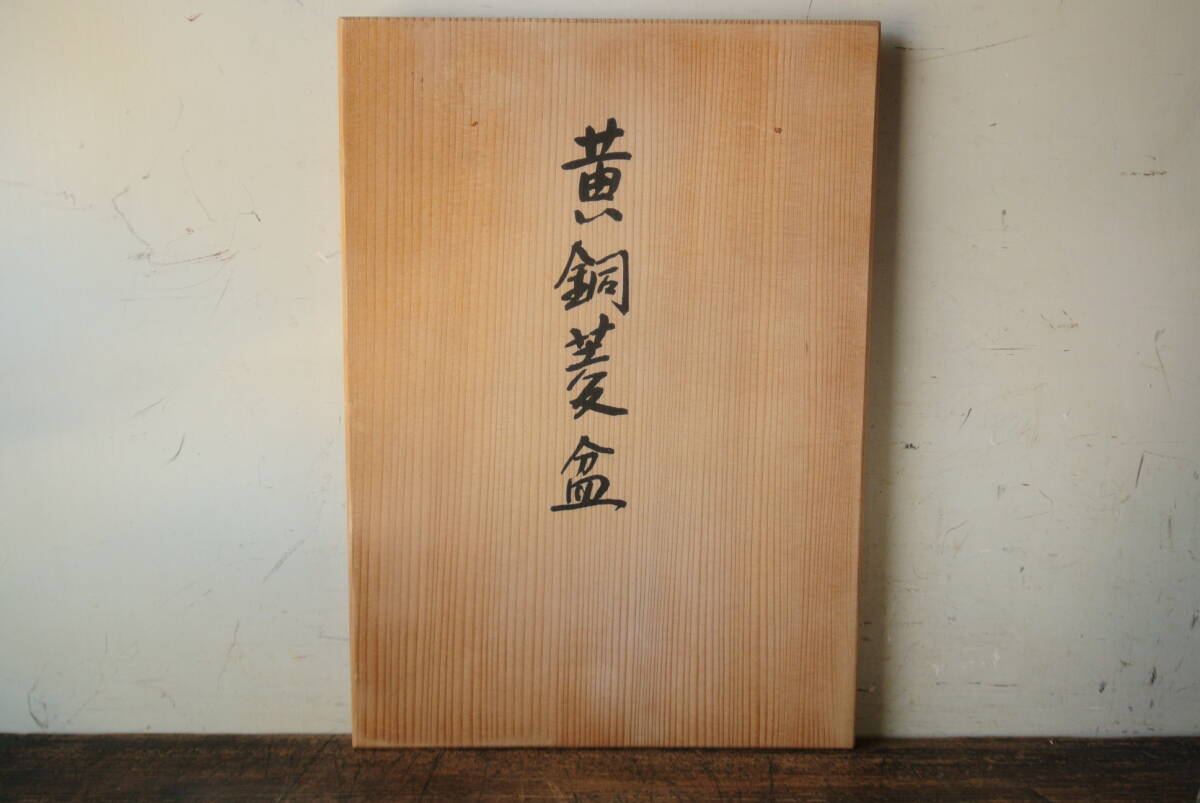 黄銅菱盆